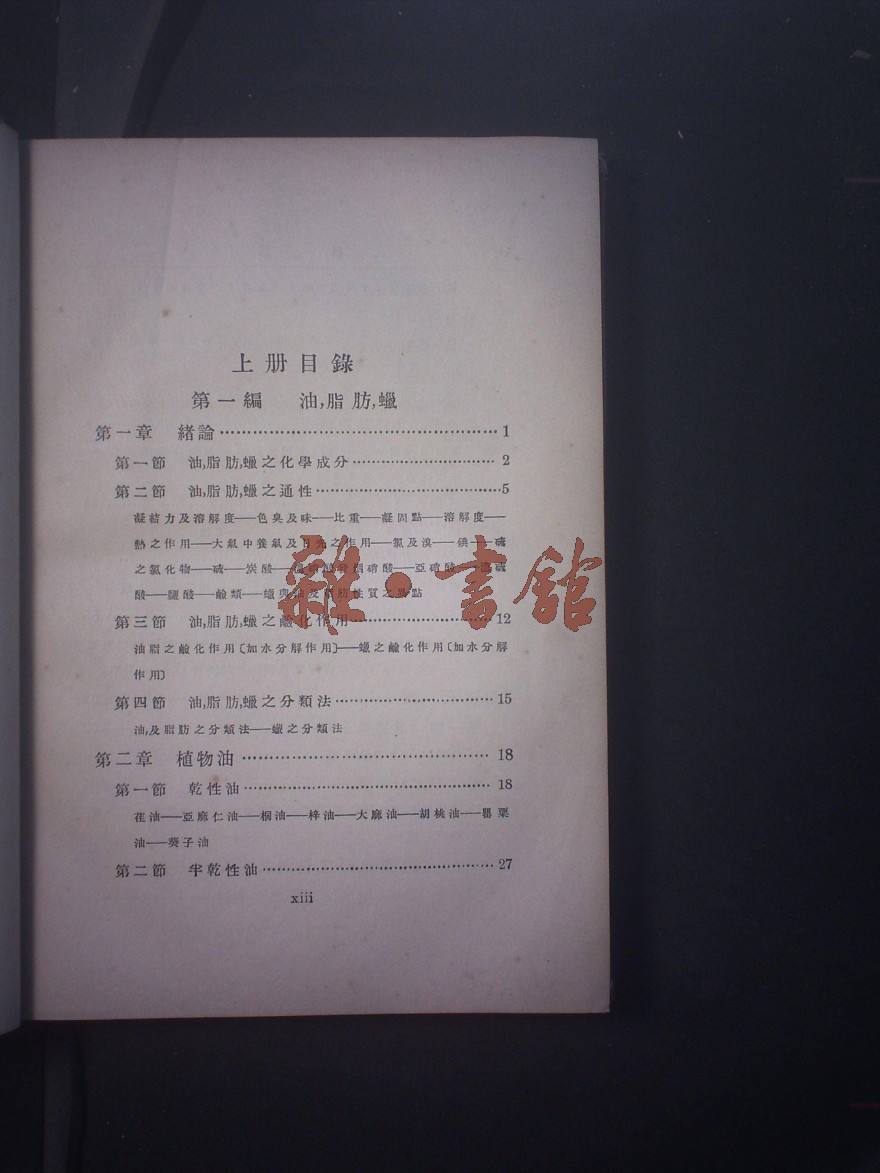 上册目錄
第一編 油,脂肪,蠟
第一章 緒論 1
第一節 油,脂肪,蠟之化學成分 2
第二節 油,脂肪,蠟之通性 5
凝結力及溶解度——色臭及味——比重——凝固點——溶解度——
熱之作用——大氣中養氣及日光之作用——氯及溴——碘——硫
之氯化物——硫——炭酸——硝酸——亞硝酸——硫
酸——鹽酸——鹼類——蠟與油及脂肪性質之異點
第三節 油,脂肪,蠟之鹼化作用 12
油脂之鹼化作用〔加水分解作用〕——蠟之鹼化作用〔加水分解
作用〕
第四節 油,脂肪,蠟之分類法 15
油,及脂肪之分類法——蠟之分類法
第二章 植物油 18
第一節 乾性油 18
荏油——亞麻仁油——桐油——梓油——大麻油——胡桃油——罌粟
油——葵子油
第二節 半乾性油 27
xiii
雜·書館